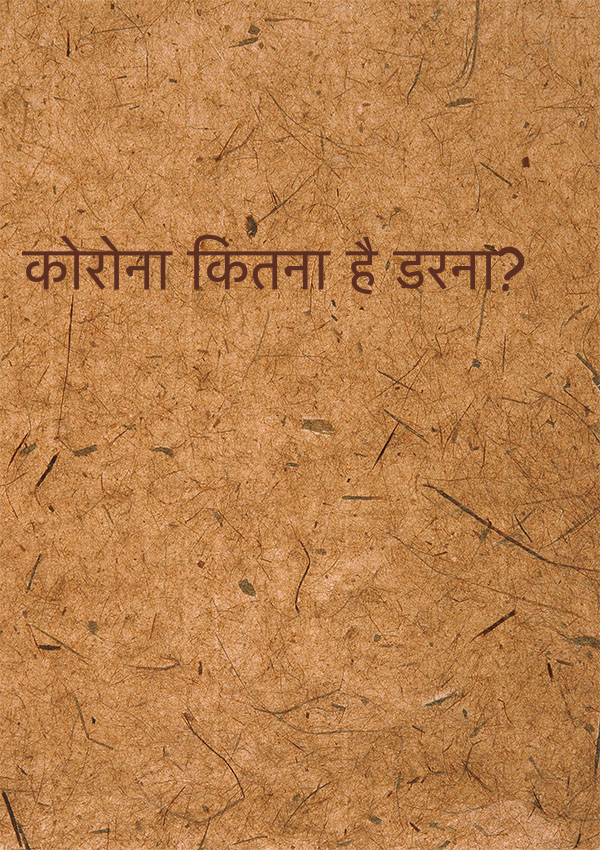 कोरोना कितना है डरना?